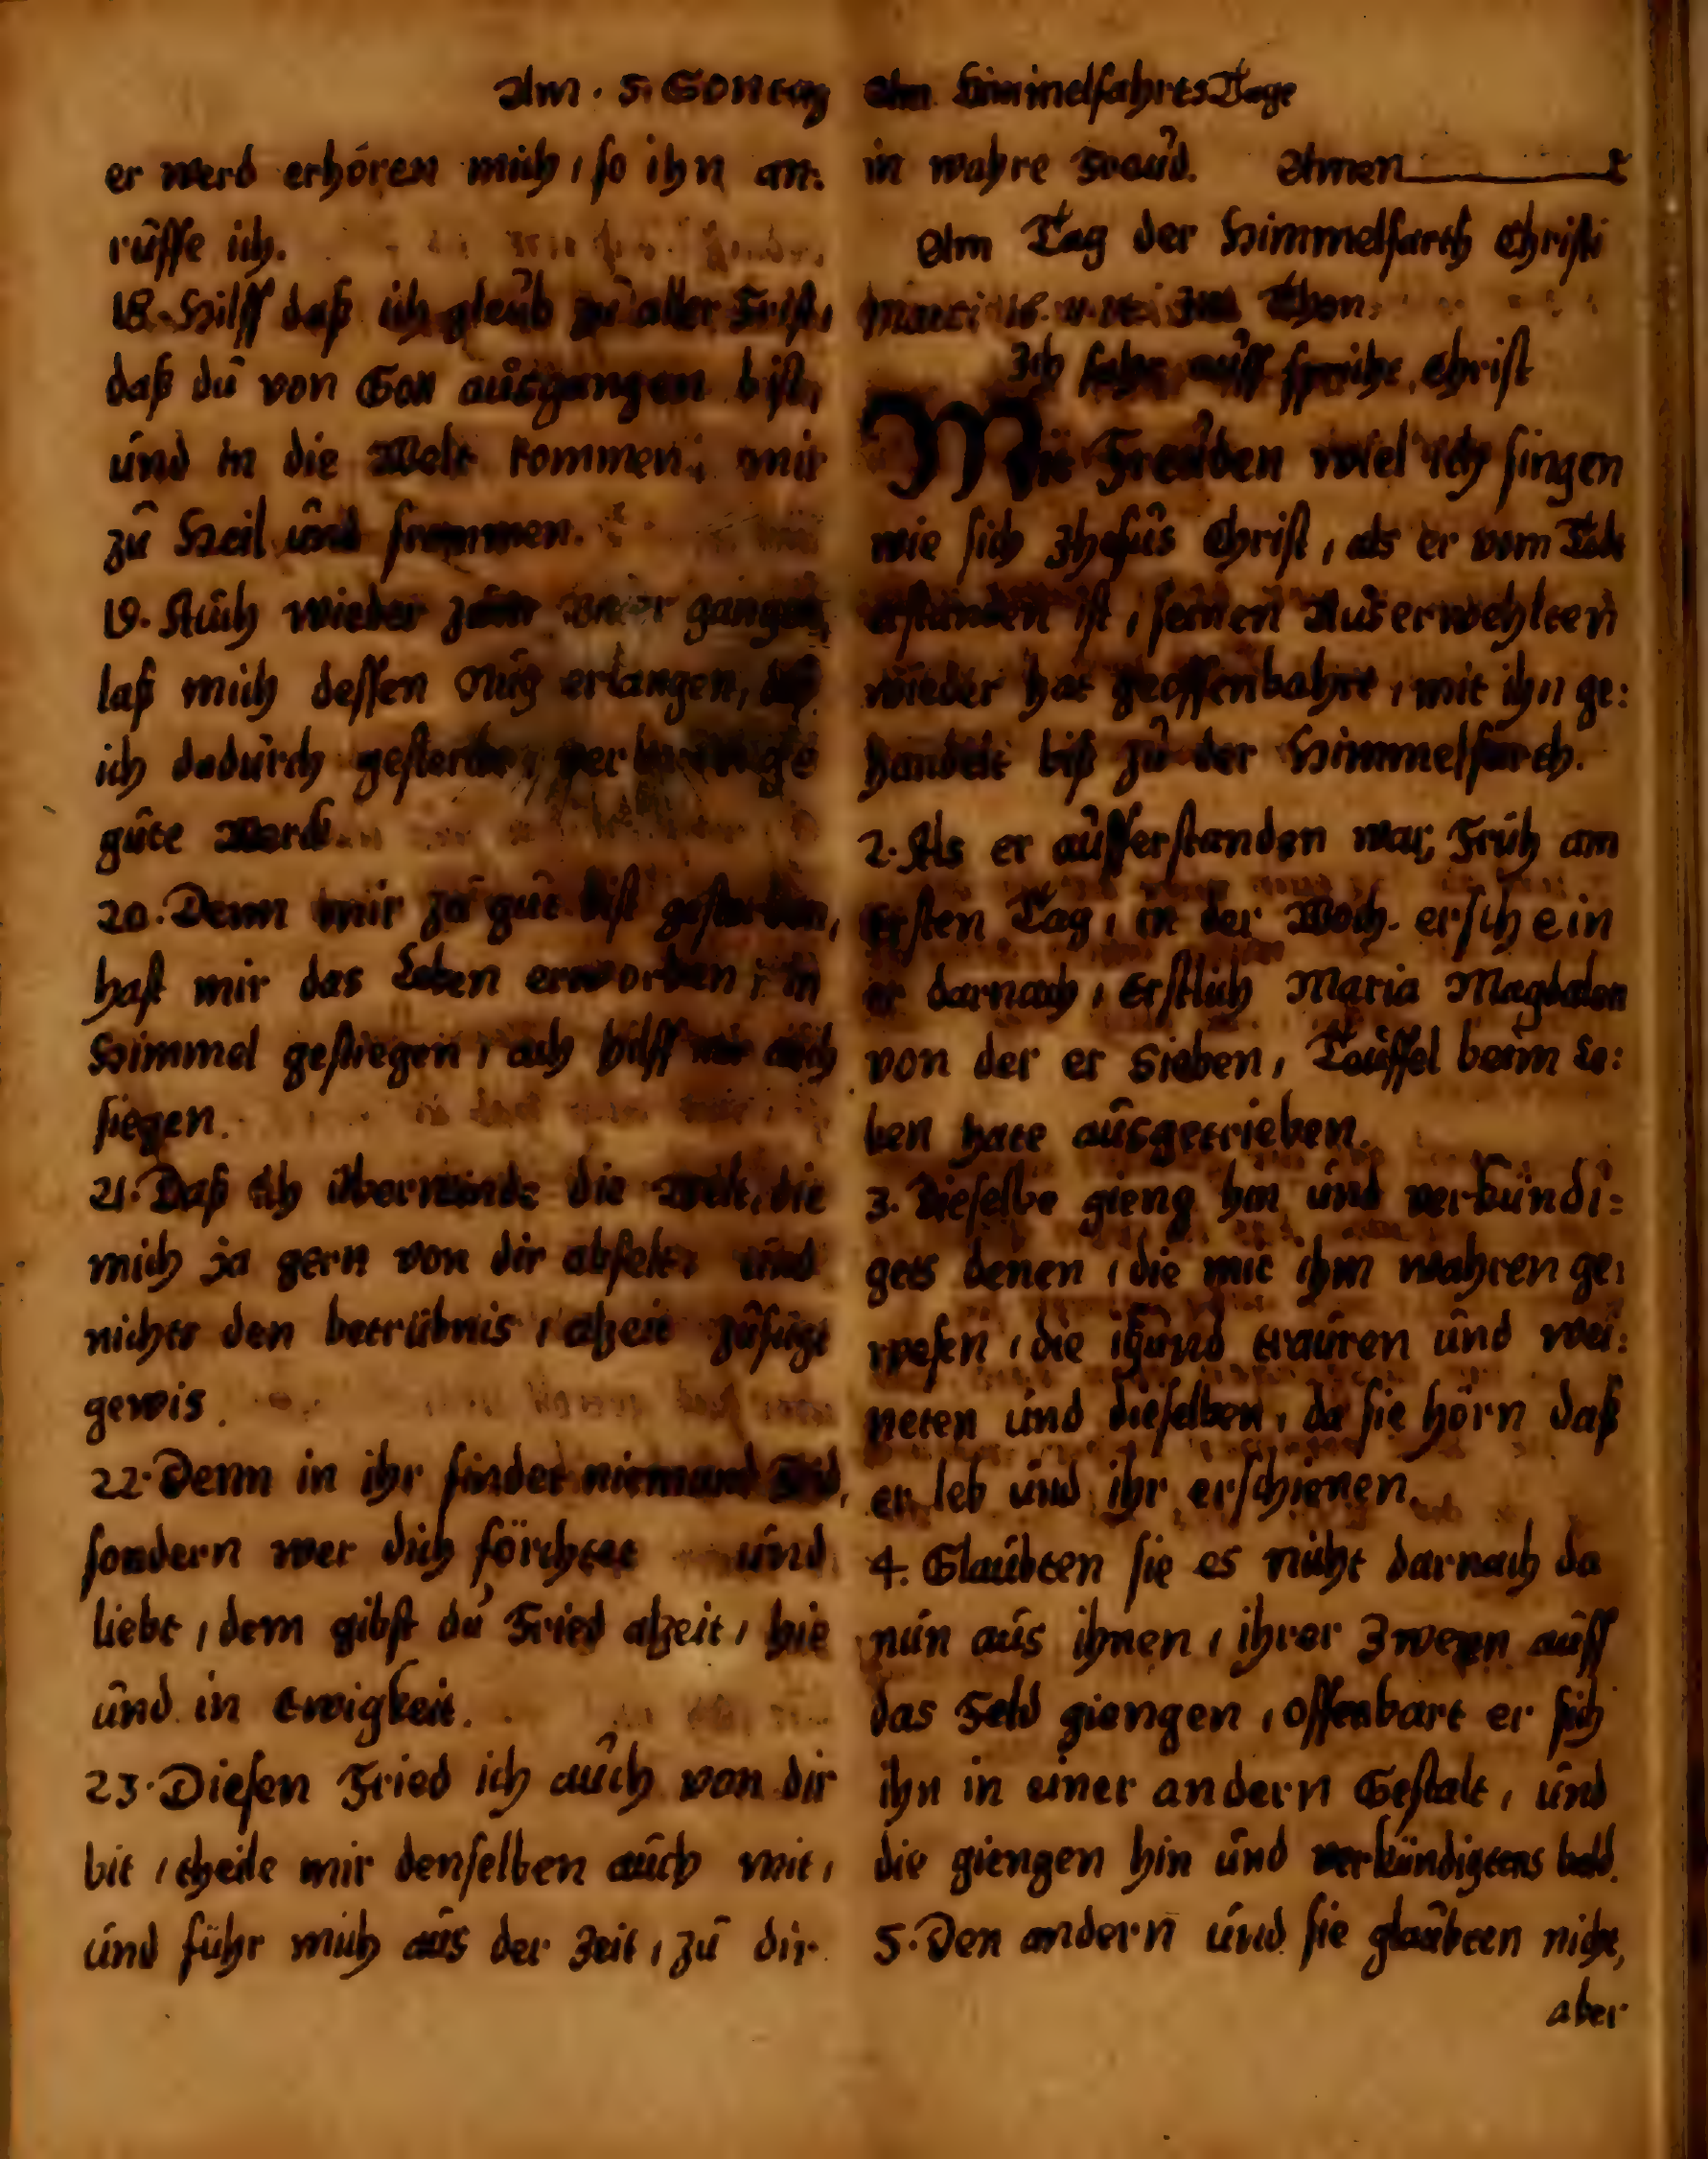 Am. 5. Sontag
er werd erhören mich, so ihn an:
ruffe ich.
18. Hilff daß ich gleub zu aller Frist,
daß du von Gott ausgangen bist,
und in die Welt kommen, mir
zu Heil und frommen.
19. Auch wieder zum gangen,
laß mich dessen Nutz erlangen, daß
ich dadurch
gute Werck
20. Denn mir zu gut bist gestorben,
hast mir das Leben erworben, in
Himmel gestiegen, ach hilff mir auch
siegen.
21. Daß ich überwinde die Welt, die
mich ja gern von dir abfelt, und
nichts den betrübnis, alzeit zufügt
gewis.
22. Denn in ihr findet niemand Frid,
sondern wer dich förchtet und
liebt, dem gibst du Fried alzeit, hie
und in Ewigkeit.
23. Diesen Fried ich auch von dir
bit, theile mir denselben auch mit,
und führ mich aus der Zeit, zu dir
Am HimmelfahrtsTage
in wahre Freud. Amen
Am Tag der Himmelfarth Christi
Marci 16. Im Thon.
Ich fahr auff spricht Christ
Mit Freuden wiel ich singen
wie sich Jhesus Christ, als er vom Tode
erstanden ist, seinen Auserwehlten
wieder hat geoffenbahrt, mit ihn ge:
handelt biß zu der Himmelfarth.
2. Als er aufferstanden war, Früh am
Ersten Tag, in der Woch. erschein
er darnach, Erstlich Maria Magdalen
von der er Sieben, Teuffel beim Le:
ben hate ausgetrieben.
3. Dieselbe gieng hin und verkündi:
gets denen, die mit ihm wahren ge:
wesen, die itzund trauren und wei:
neten und dieselben, da sie hörn daß
er leb und ihr erschienen.
4. Glaubten sie es nicht darnach da
nun aus ihnen, ihrer Zween auff
das Feld giengen, offenbart er sich
ihn in einer andern Gestalt, und
die giengen hin und verkündigtens bald.
5. Den andern und sie glaubten nicht,
aber